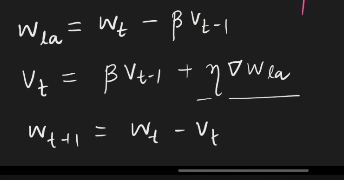 w_la = w_t - β v_t-1
v_t = β v_t-1 + η ∇ w_la
w_t+1 = w_t - v_t